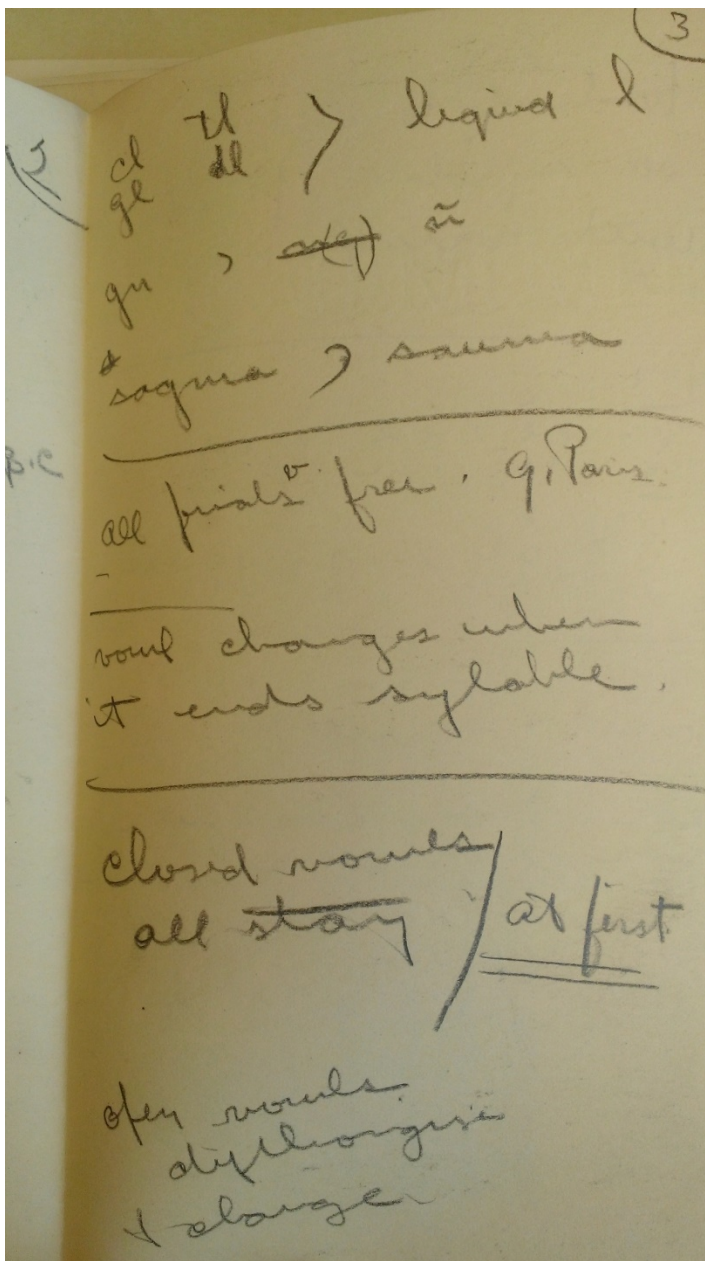 3
cl tl > liquid l
gl dl
gn > ñ
*sagma > sauma
B.C
all finals v. free. G. Paris.
vowl changes when
it ends sylable.
closed vowels
all stay / at first
open vowels
dipthongise
& change